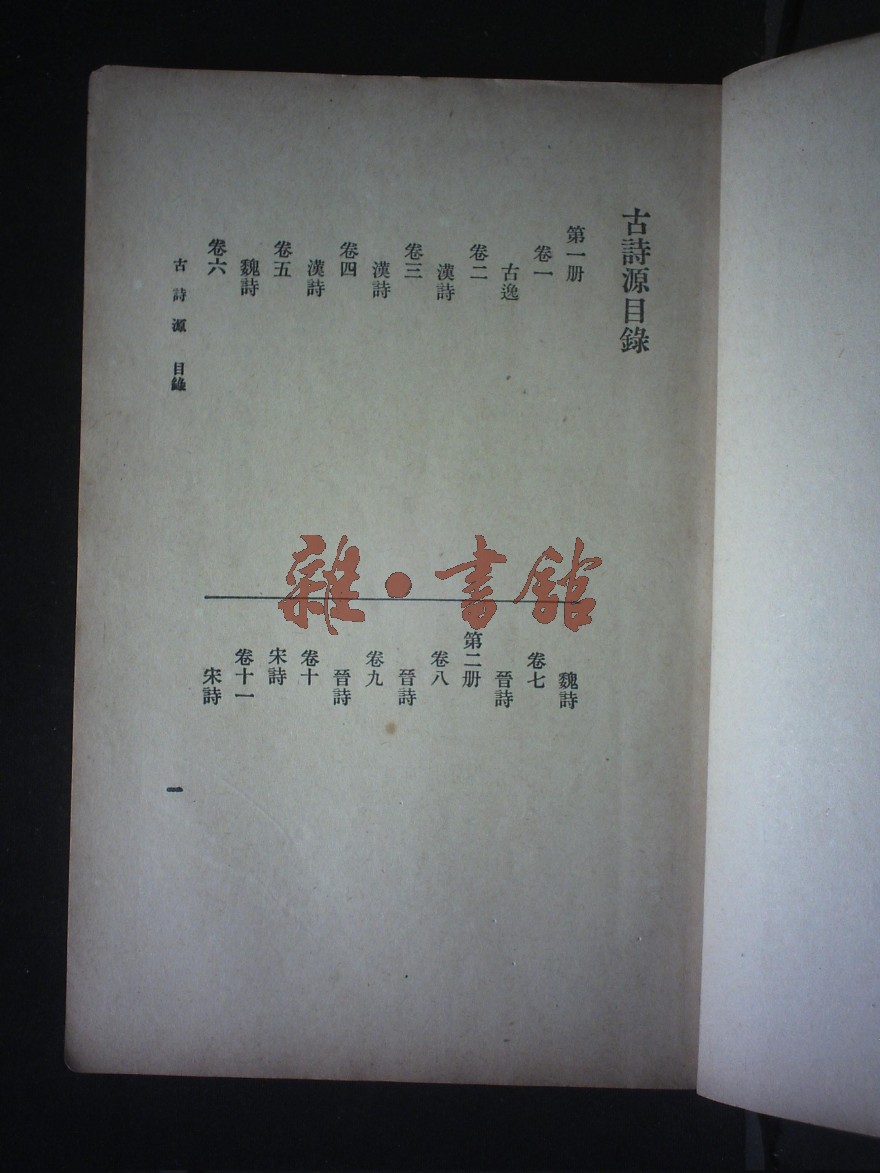 古詩源目錄
第一册
卷一
古逸
卷二
漢詩
卷三
漢詩
卷四
漢詩
卷五
魏詩
卷六
魏詩
卷七
晉詩
第二册
卷八
晉詩
卷九
晉詩
卷十
宋詩
卷十一
宋詩
古詩源 目錄
一
雜·書館